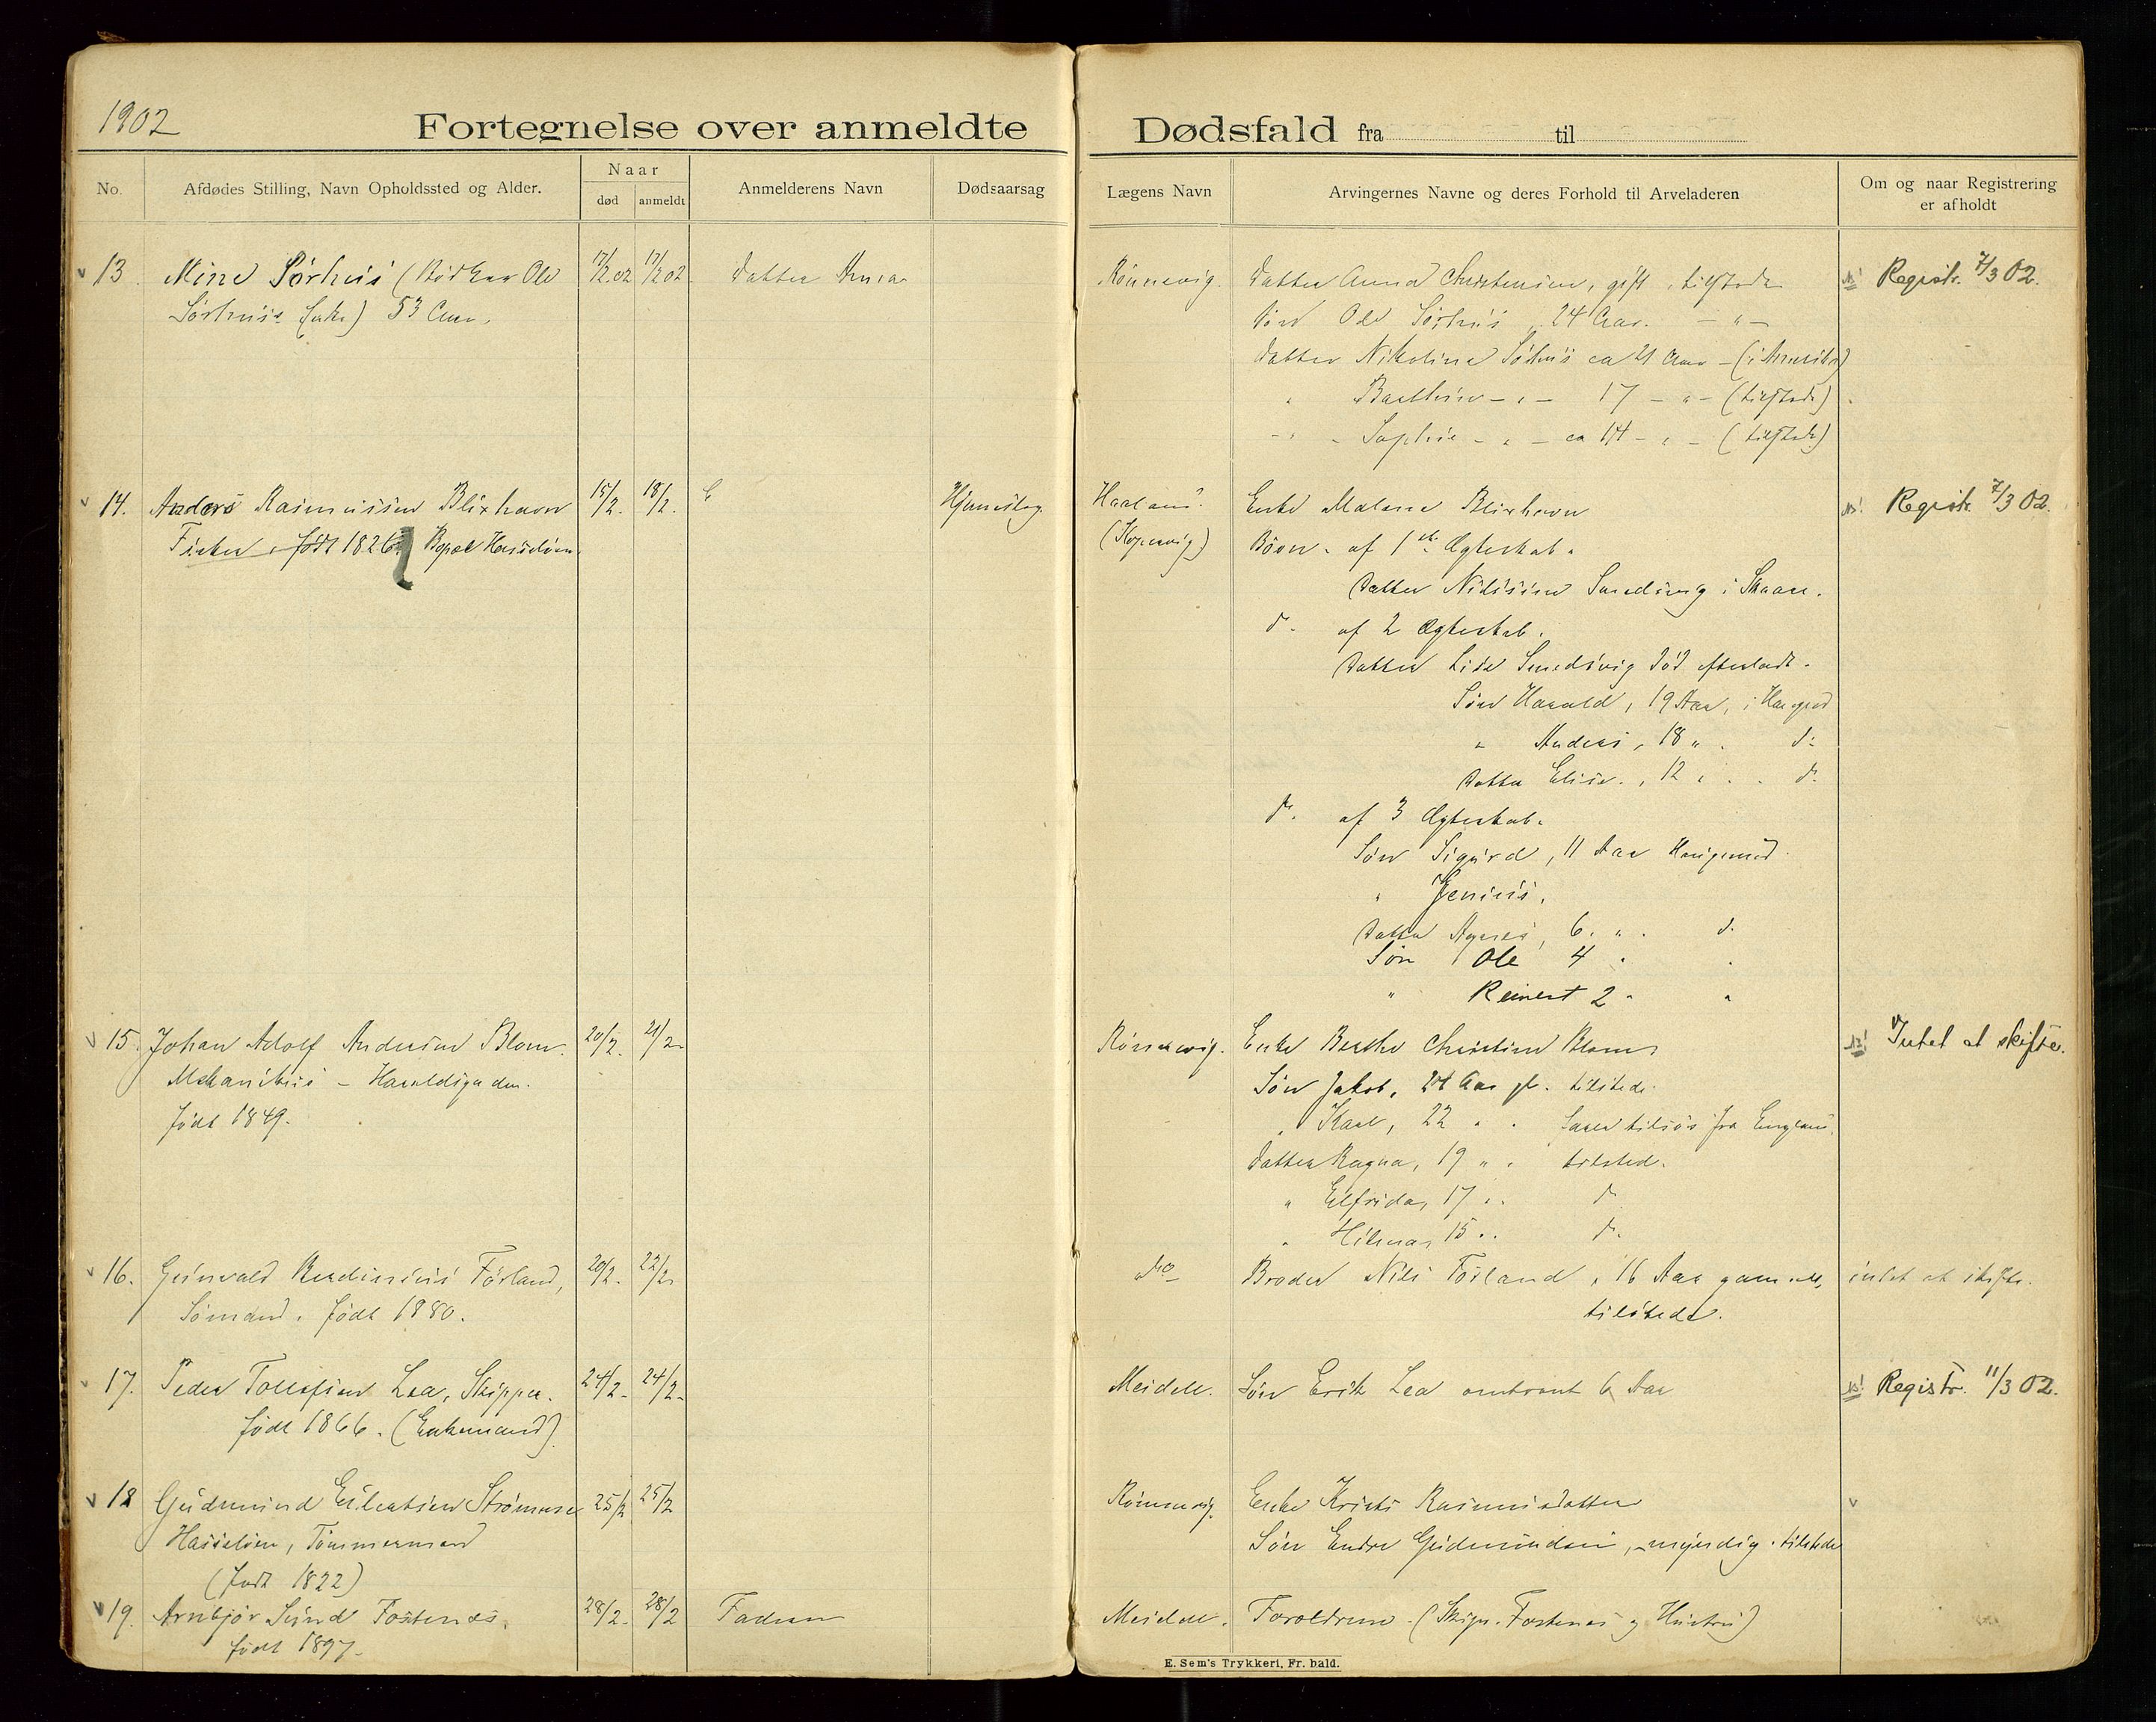 1902
Fortegnelse over anmeldte Dødsfald fra til
No.
Afdødes Stilling, Navn Opholdssted og Alder.
Naar
død
anmeldt
Anmelderens Navn
Dødsaarsag
Lægens Navn
Arvingernes Navne og deres Forhold til Arveladeren
Om og naar Registrering
er afholdt
13. Mine Sörhus (Ole 17/2 02 17/2 02 datter Anna Rönnevig. datter Anna Christensen, gift, tilstede Registr. 7/3 02.
Sörhus's Enke) 53 Aar. Sön Ole Sörhus, 24 Aar. — " —
datter Nikoline Sörhus ca 21 Aar - (i Amerika)
" Barthine - " - 17 - " - (tilstede)
- " - Sophie - " - ca 14 - " - (tilstede)
14. Anders Rasmussen Blixhavn 15/2. 18/2. Hjerneslag. Haaland Enke Malene Blixhavn Registr. 7/3 02.
Fisker, født 1826, Bopæl Hasseløen. (Kopervig) Börn af 1ste Ægteskab.
datter Nilsine Smedsvig i Skaare.
do. af 2 Ægteskab.
datter Lise Smedsvig död efterladt.
Sön Harald, 19 Aar, i Haugesd
" Anders, 18 " . do
datter Elise, 12 " . do.
do. af 3 Ægteskab.
Sön Sigurd, 11 Aar Haugesund.
" Jenius,
datter Agnes, 6 " . do.
Sön Ole 4 "
" Reinert 2 " "
15. Johan Adolf Andersen Blom. 20/2. 21/2. Rönnevig. Enke Berthe Christine Blom Intet at skifte.
Mekanikus - Haraldsgaden. Sön Jakob, 24 Aar gl. tilstede.
født 1849. " Karl, 22 " " farer tilsös fra England.
datter Ragna, 19 " " tilsted.
" Elfrida, 17 " . do
" Hilma, 15 " . do.
16. Gunvald Berdinius Förland, 20/2. 22/2. do Broder Nils Förland, 16 Aar gammel, intet at skifte.
Sömand, født 1880. tilstede.
17. Peder Tollefsen Lea, Skipper. 24/2. 24/2. Meidell. Sön Erik Lea omtrent 6 Aar Registr. 11/3 02.
født 1866. (Enkemand).
18 Gudmund Strömmen 25/2 25/2 Rönnevig. Enke Kristi Rasmusdatter
Hasseløen, Tømmermand Sön Endre Gudmundsen, myndig, tilstede
(født 1822)
19. Arnbjör Sund Fosenes. 28/2. 28/2 Faderen Meidell. Forældrene (Skipr. Fosenes og Hustru)
født 1897.
E. Sem's Trykkeri, Fr. hald.